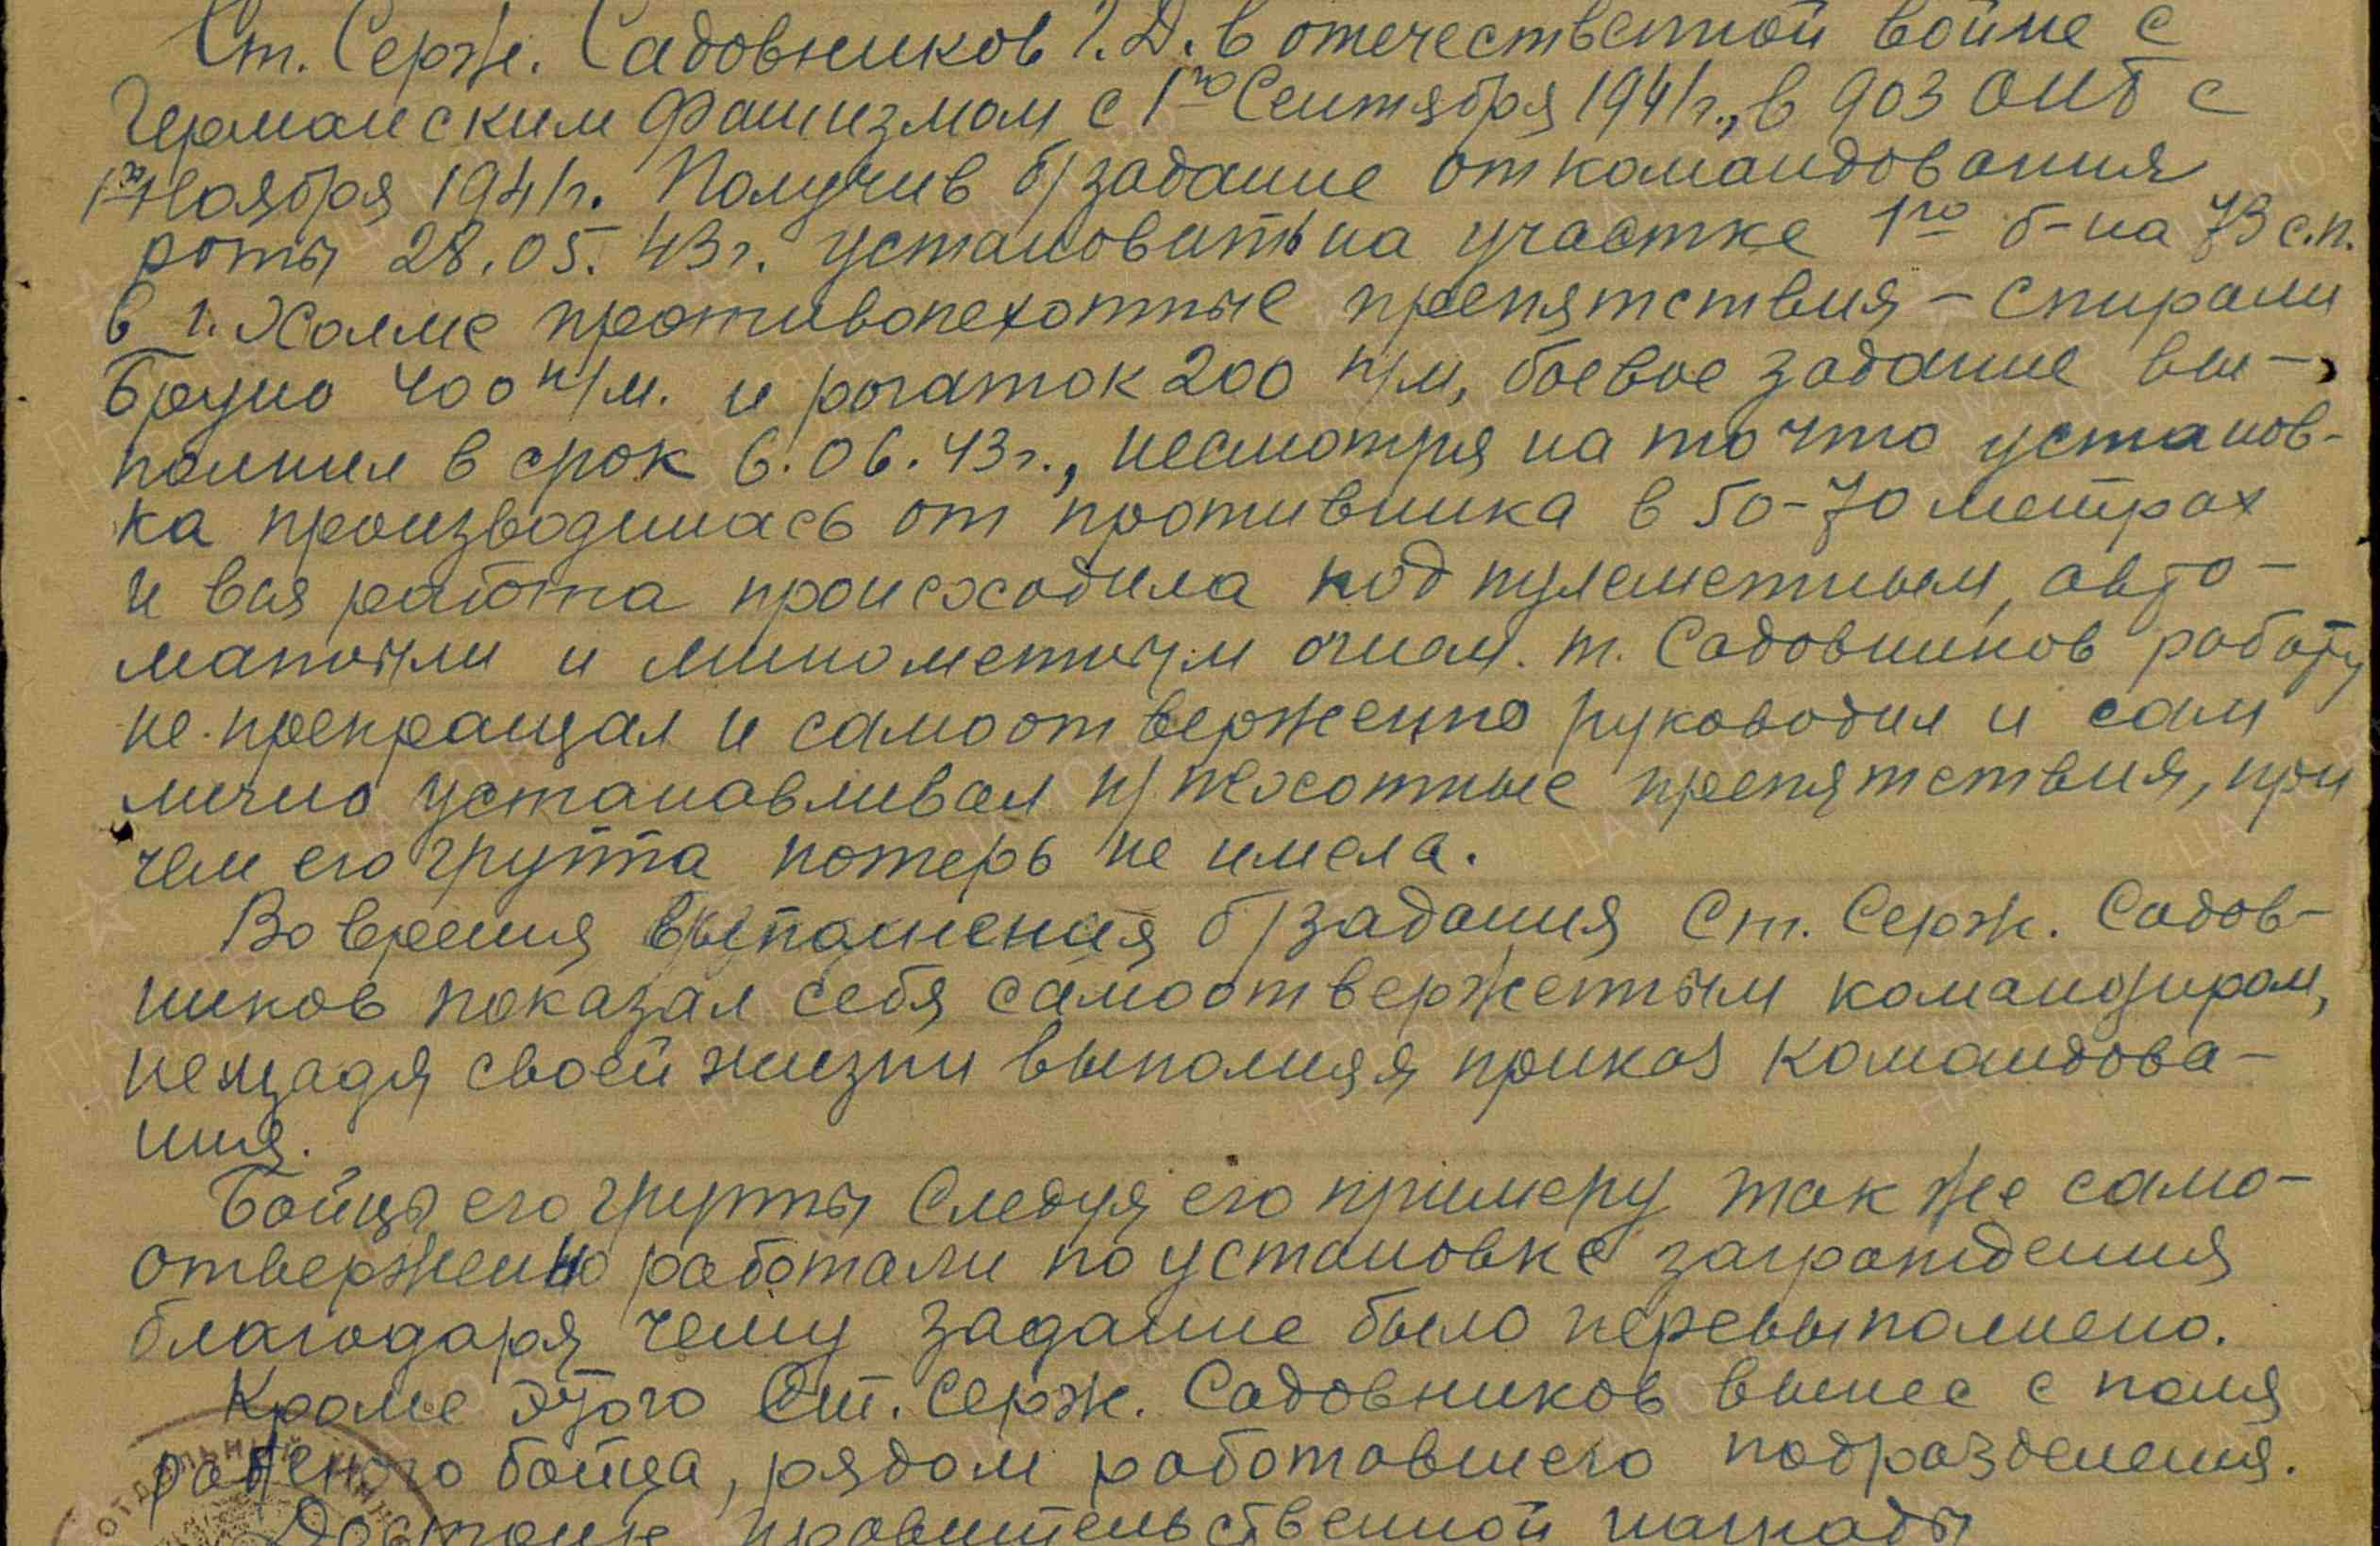 Ст. Серж. Садовников Г.Д. в отечественной войне с
Германским Фашизмом с 1го Сентября 1941г., в 903 ОИБ с
1го Ноября 1941г. Получив б/задание от командования
роты 28.05.43г. установить на участке 1го б-на 73 с.п.
в г. Холме противопехотные препятствия – спирали
Бруно 400 п/м. и рогаток 200 п/м, боевое задание вы-
полнил в срок 6.06.43г., несмотря на то что установ-
ка производилась от противника в 50-70 метрах
и вся работа происходила под пулеметным, авто-
матным и минометным огнем. т. Садовников работу
не прекращал и самоотверженно руководил и сам
лично устанавливал п/пехотные препятствия, при
чем его группа потерь не имела.
Во время выполнения б/задания Ст. Серж. Садов-
ников показал себя самоотверженным командиром,
нещадя своей жизни выполняя приказ командова-
ния.
Бойцы его группы Следуя его примеру так же само-
отверженно работали по установке заграждения
благодаря чему задание было перевыполнено.
Кроме этого Ст. Серж. Садовников вынес с поля
раненого бойца, рядом работавшего подразделения.
Достоин правительственной награды
ОТДЕЛЬНЫЙ